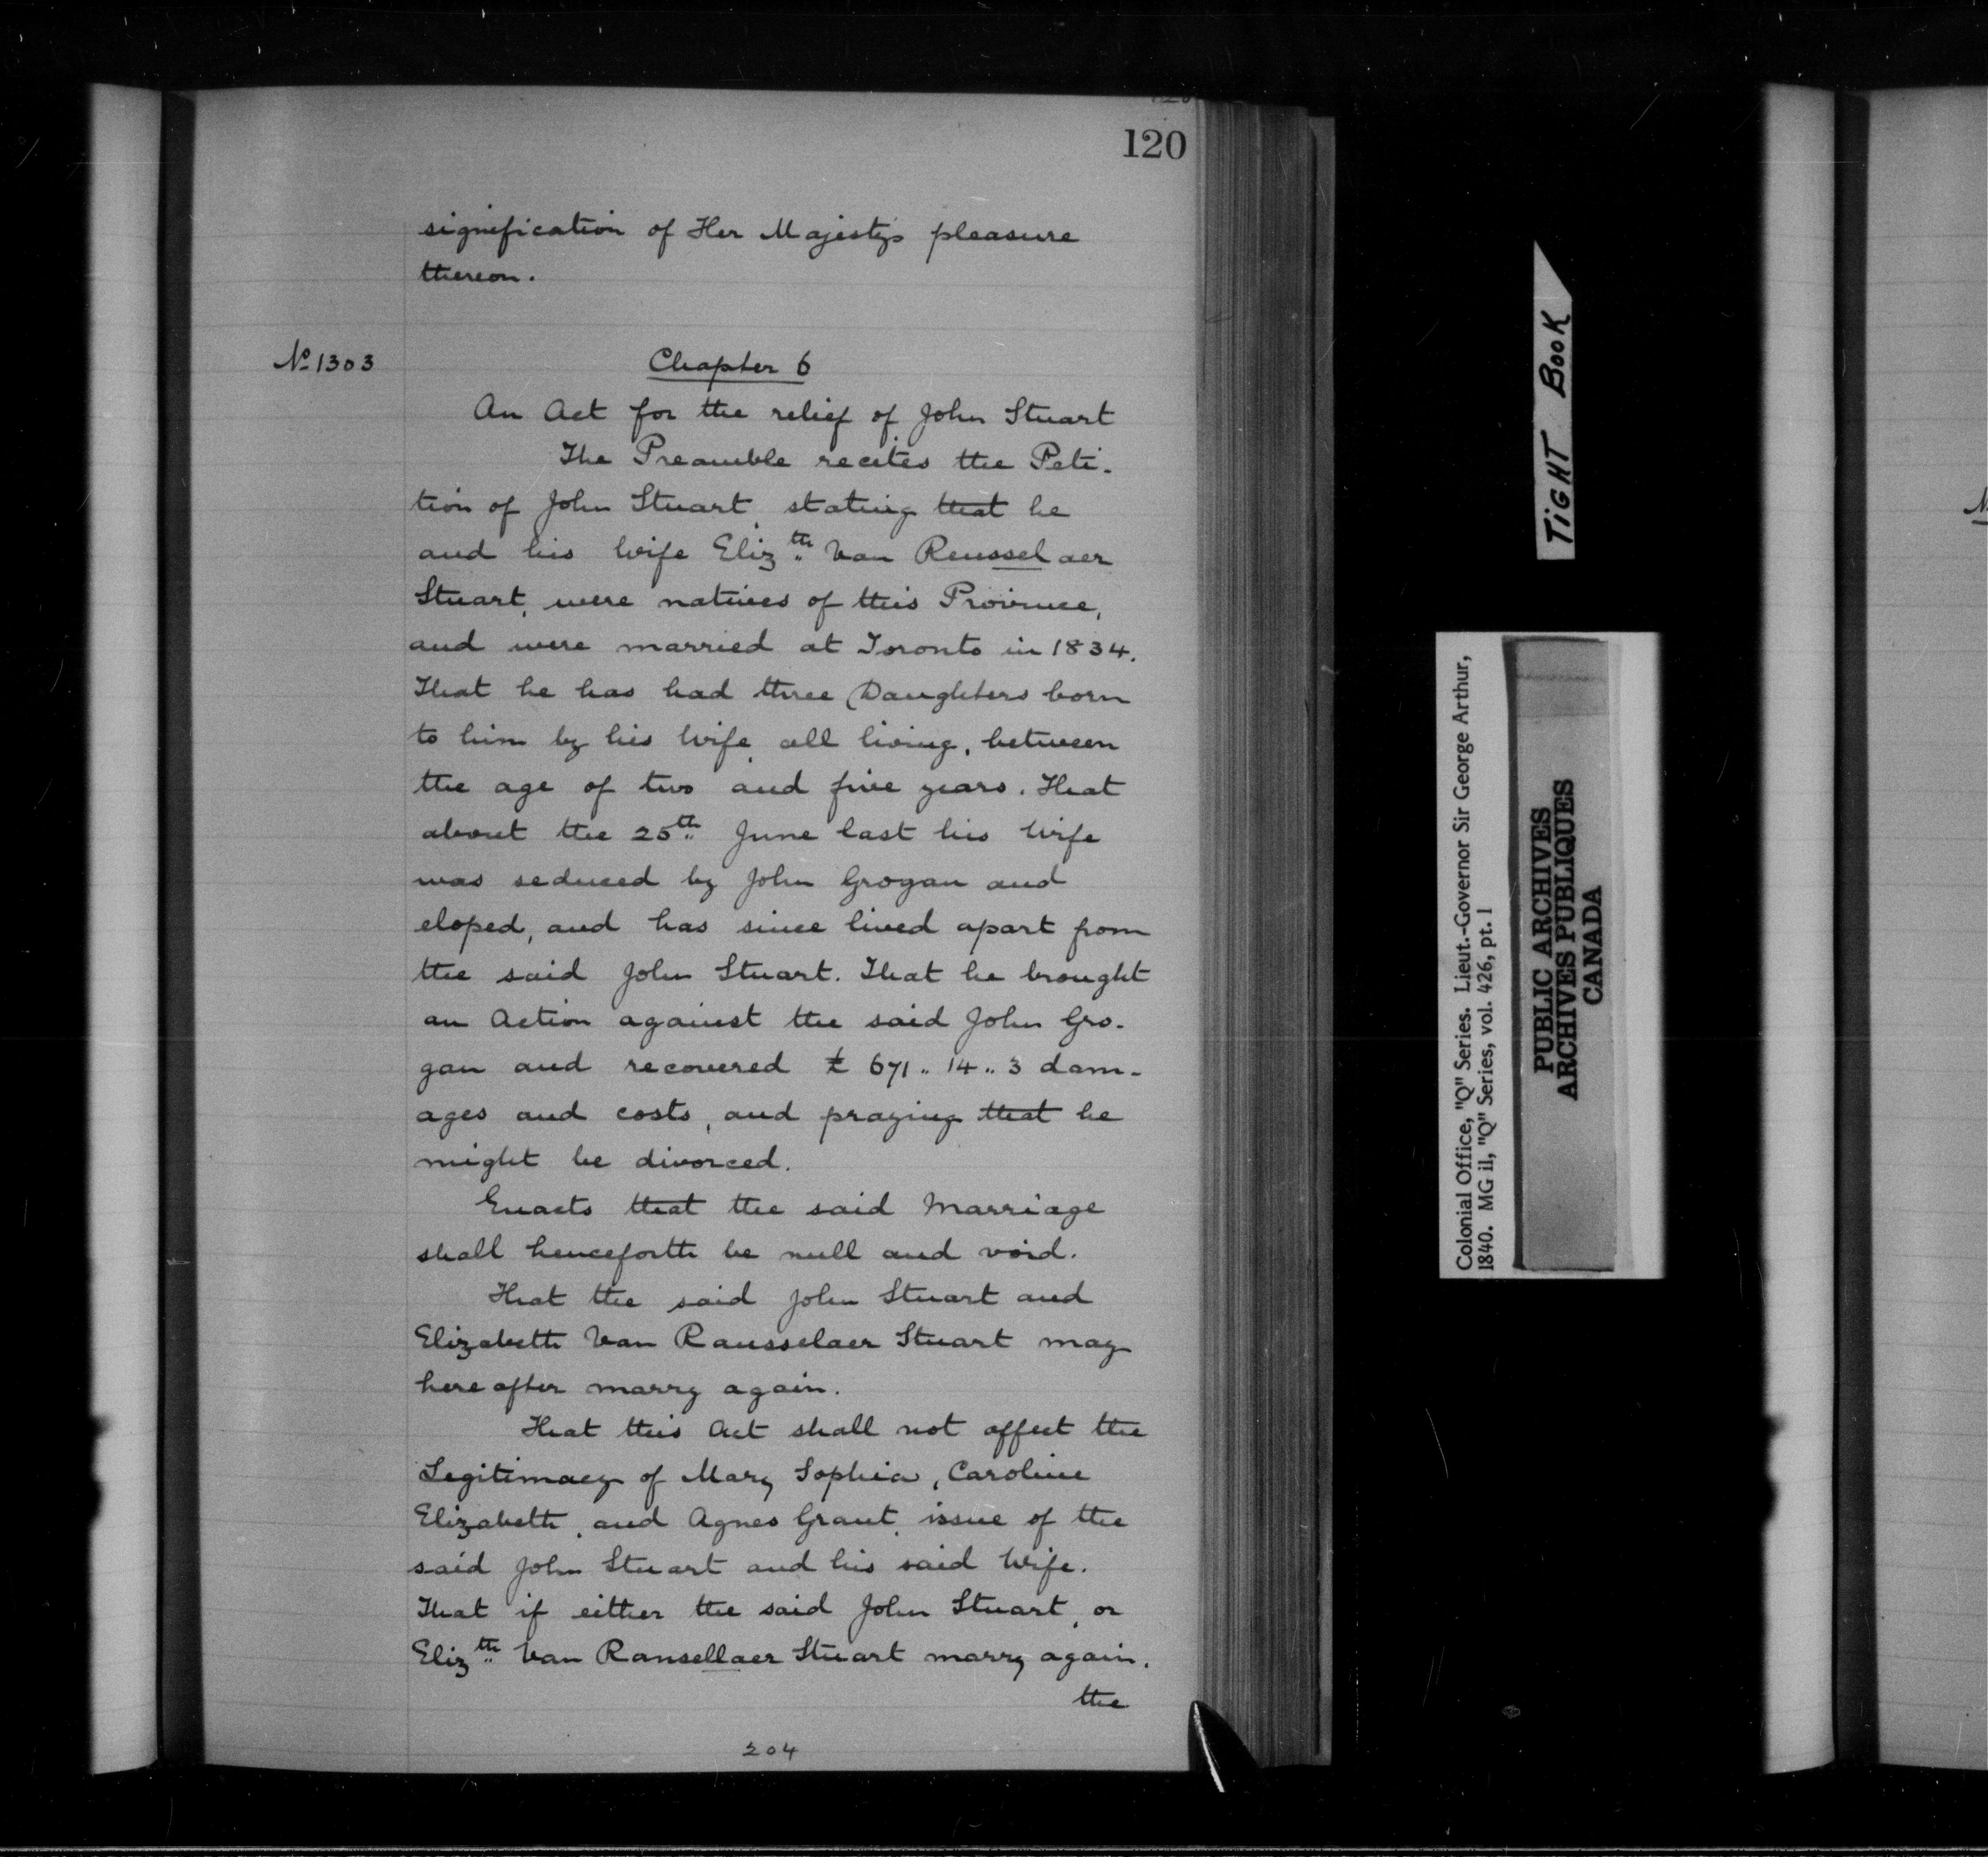 120
signification of Her Majestys pleasure
thereon.
No 1303
Chapter 6
An Act for the relief of John Stuart
The Preamble recites the Peti-
tion of John Stuart, stating that he
and his Wife Elizth Van Reusselaer
Stuart, were natives of this Province,
and were married at Toronto in 1834.
That he has had three Daughters born
to him by his Wife, all living, between
the age of two and five years. That
about the 25th June last his Wife
was seduced by John Grogan and
eloped, and has since lived apart from
the said John Stuart. That he brought
an Action against the said John Gro-
gan and recovered £ 671 .. 14 .. 3 dam-
ages and costs, and praying that he
might be divorced.
Enacts that the said Marriage
shall henceforth be null and void.
That the said John Stuart and
Elizabeth Van Rausselaer Stuart may
hereafter marry again.
That this Act shall not affect the
Legitimacy of Mary Sophia, Caroline
Elizabeth, and Agnes Grant, issue of the
said John Stuart and his said Wife.
That if either the said John Stuart, or
Elizth Van Ransellaer Stuart marry again,
the
204
TiGHT BooK
Colonial Office, "Q" Series. Lieut.-Governor Sir George Arthur,
1840. MG 11, "Q" Series, vol. 426, pt. 1
PUBLIC ARCHIVES
ARCHIVES PUBLIQUES
CANADA